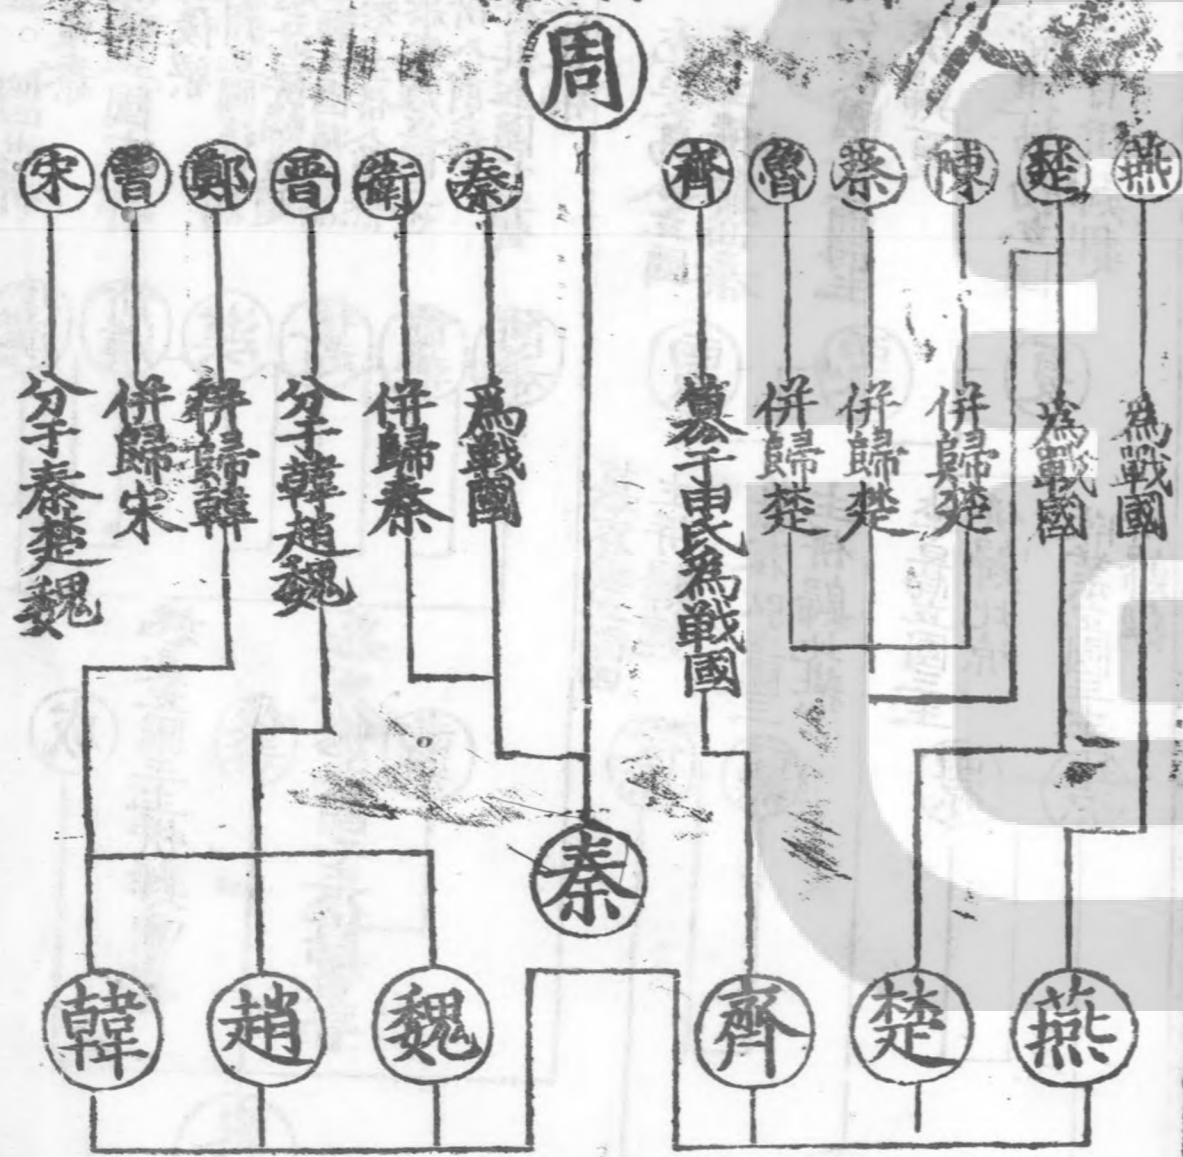 周
燕
楚
陳
蔡
魯
齊
秦
衛
晋
鄭
曹
宋
為戰國
為戰國
併歸楚
併歸楚
併歸楚
篡于田氏為戰國
為戰國
併歸秦
分于韓趙魏
併歸韓
併歸宋
分于秦楚魏
秦
燕
楚
齊
魏
趙
韓